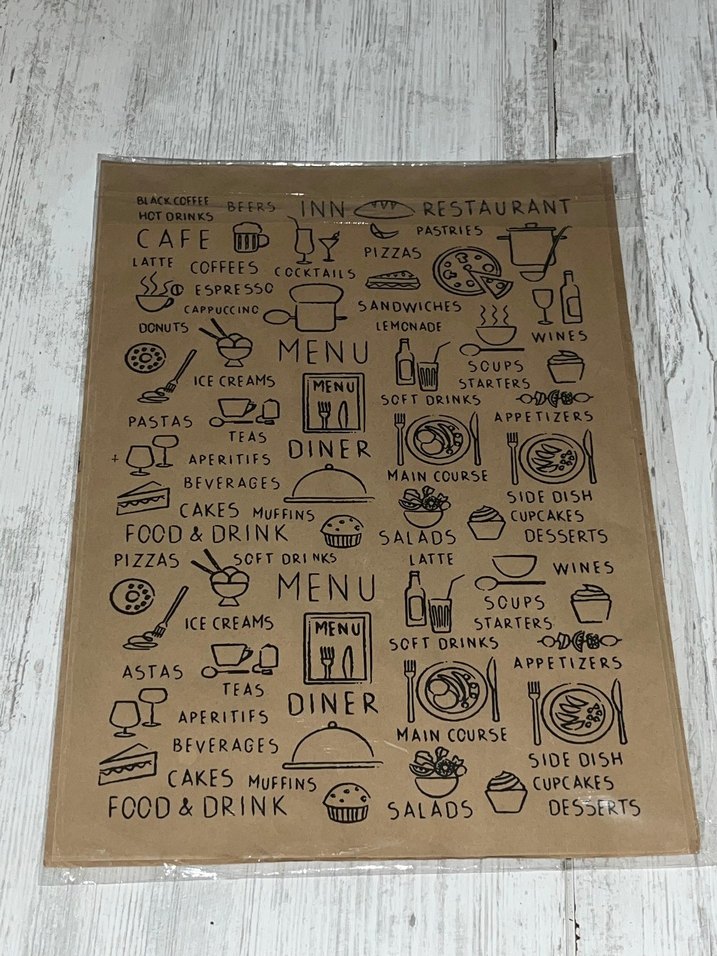 BLACK COFFEE
HOT DRINKS
BEERS
INN
RESTAURANT
CAFE
PASTRIES
LATTE
COFFEES
COCKTAILS
PIZZAS
ESPRESSO
CAPPUCCINO
SANDWICHES
DONUTS
LEMONADE
WINES
MENU
SOUPS
STARTERS
ICE CREAMS
MENU
SOFT DRINKS
APPETIZERS
PASTAS
TEAS
DINER
APERITIFS
MAIN COURSE
BEVERAGES
SIDE DISH
CAKES
MUFFINS
CUPCAKES
FOOD & DRINK
SALADS
DESSERTS
PIZZAS
SOFT DRINKS
LATTE
WINES
MENU
SOUPS
STARTERS
ICE CREAMS
MENU
SOFT DRINKS
APPETIZERS
ASTAS
TEAS
DINER
APERITIFS
MAIN COURSE
BEVERAGES
SIDE DISH
CAKES
MUFFINS
CUPCAKES
FOOD & DRINK
SALADS
DESSERTS